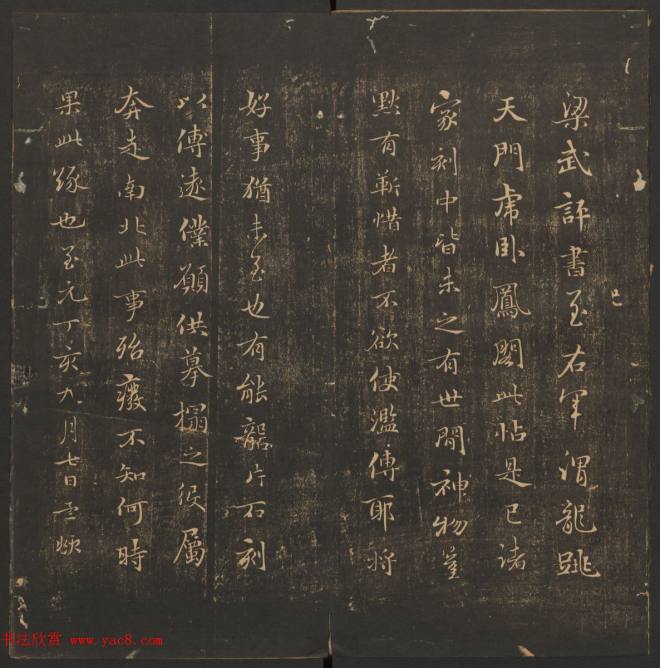 梁武評書至右軍謂龍跳
天門虎卧鳳閣此帖是已諸
家刻中皆未之有世間神物豈
默有靳惜者不欲使濫傳耶將
好事猶未至也有能礱片石刻
以傳遠僕願供摹搨之役屬
奔走南北此事殆癈不知何時
果此緣也至元丁亥九月七日孟頫
书法欣赏 www.yac8.com